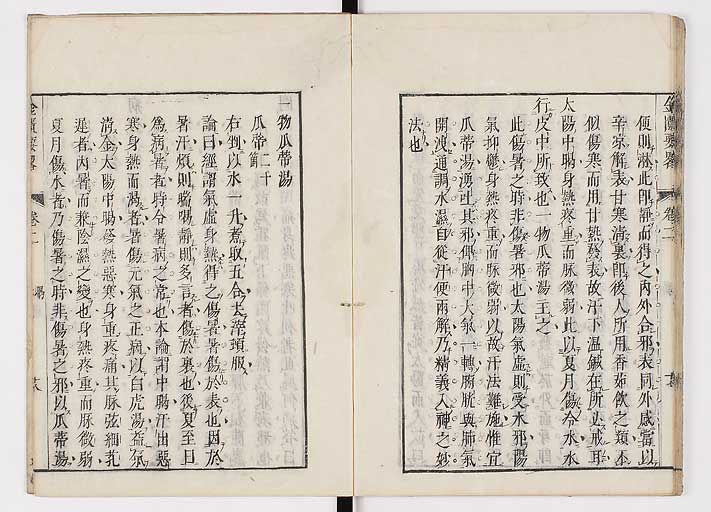 便則淋此即靜而得之內外合邪表同外感當以
辛涼解表甘寒清裏即後人所用香茹飲之類不
似傷寒而用甘熱發表故汗下溫鍼在所必戒耳
太陽中暍身熱疼重而脉微弱此以夏月傷冷水水
行皮中所致也一物瓜蒂湯主之
此傷暑之時非傷暑邪也太陽氣虛則受水邪陽
氣抑鬱身熱疼重而脉微弱以故汗法難施惟宜
瓜蒂湯湧吐其邪俾胸中大氣一轉膀胱與肺氣
開洩通調水濕自從汗便兩解乃精義入神之妙
法也
一物瓜蒂湯
瓜蒂二十箇
右剉以水一升煮取五合去滓頓服
論曰經謂氣虛身熱得之傷暑暑傷於表也因於
暑汗煩則喘喝靜則多言者傷於裏也後夏至日
為病暑者時令暑病之常也本論謂中暍汗出惡
寒身熱而渴者暑傷元氣之正病以白虎湯益氣
清金太陽中暍發熱惡寒身重疼痛其脉弦細芤
遲者內暑而兼陰濕之變也身熱疼重而脉微弱
夏月傷水者乃傷暑之時非傷暑之邪以瓜蒂湯
金匱要略
卷二
暍